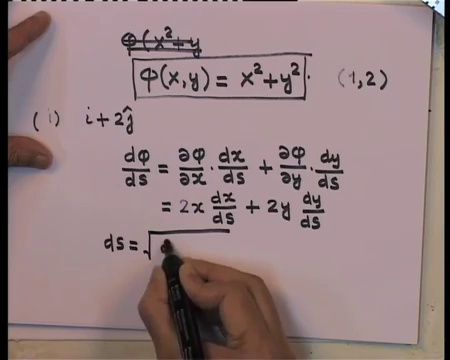 φ(x²+y
φ(x,y) = x²+y². (1,2)
(i) i+2ĵ
dφ/ds = ∂φ/∂x · dx/ds + ∂φ/∂y · dy/ds
= 2x dx/ds + 2y dy/ds
ds = √